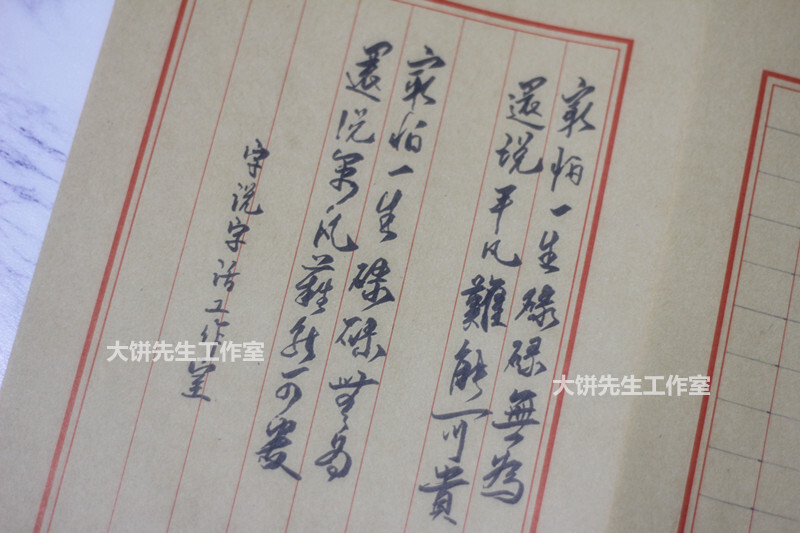 最怕一生碌碌無為
還说平凡難能可貴
最怕一生碌碌無為
還说平凡難能可貴
字说字语工作室
大饼先生工作室
大饼先生工作室